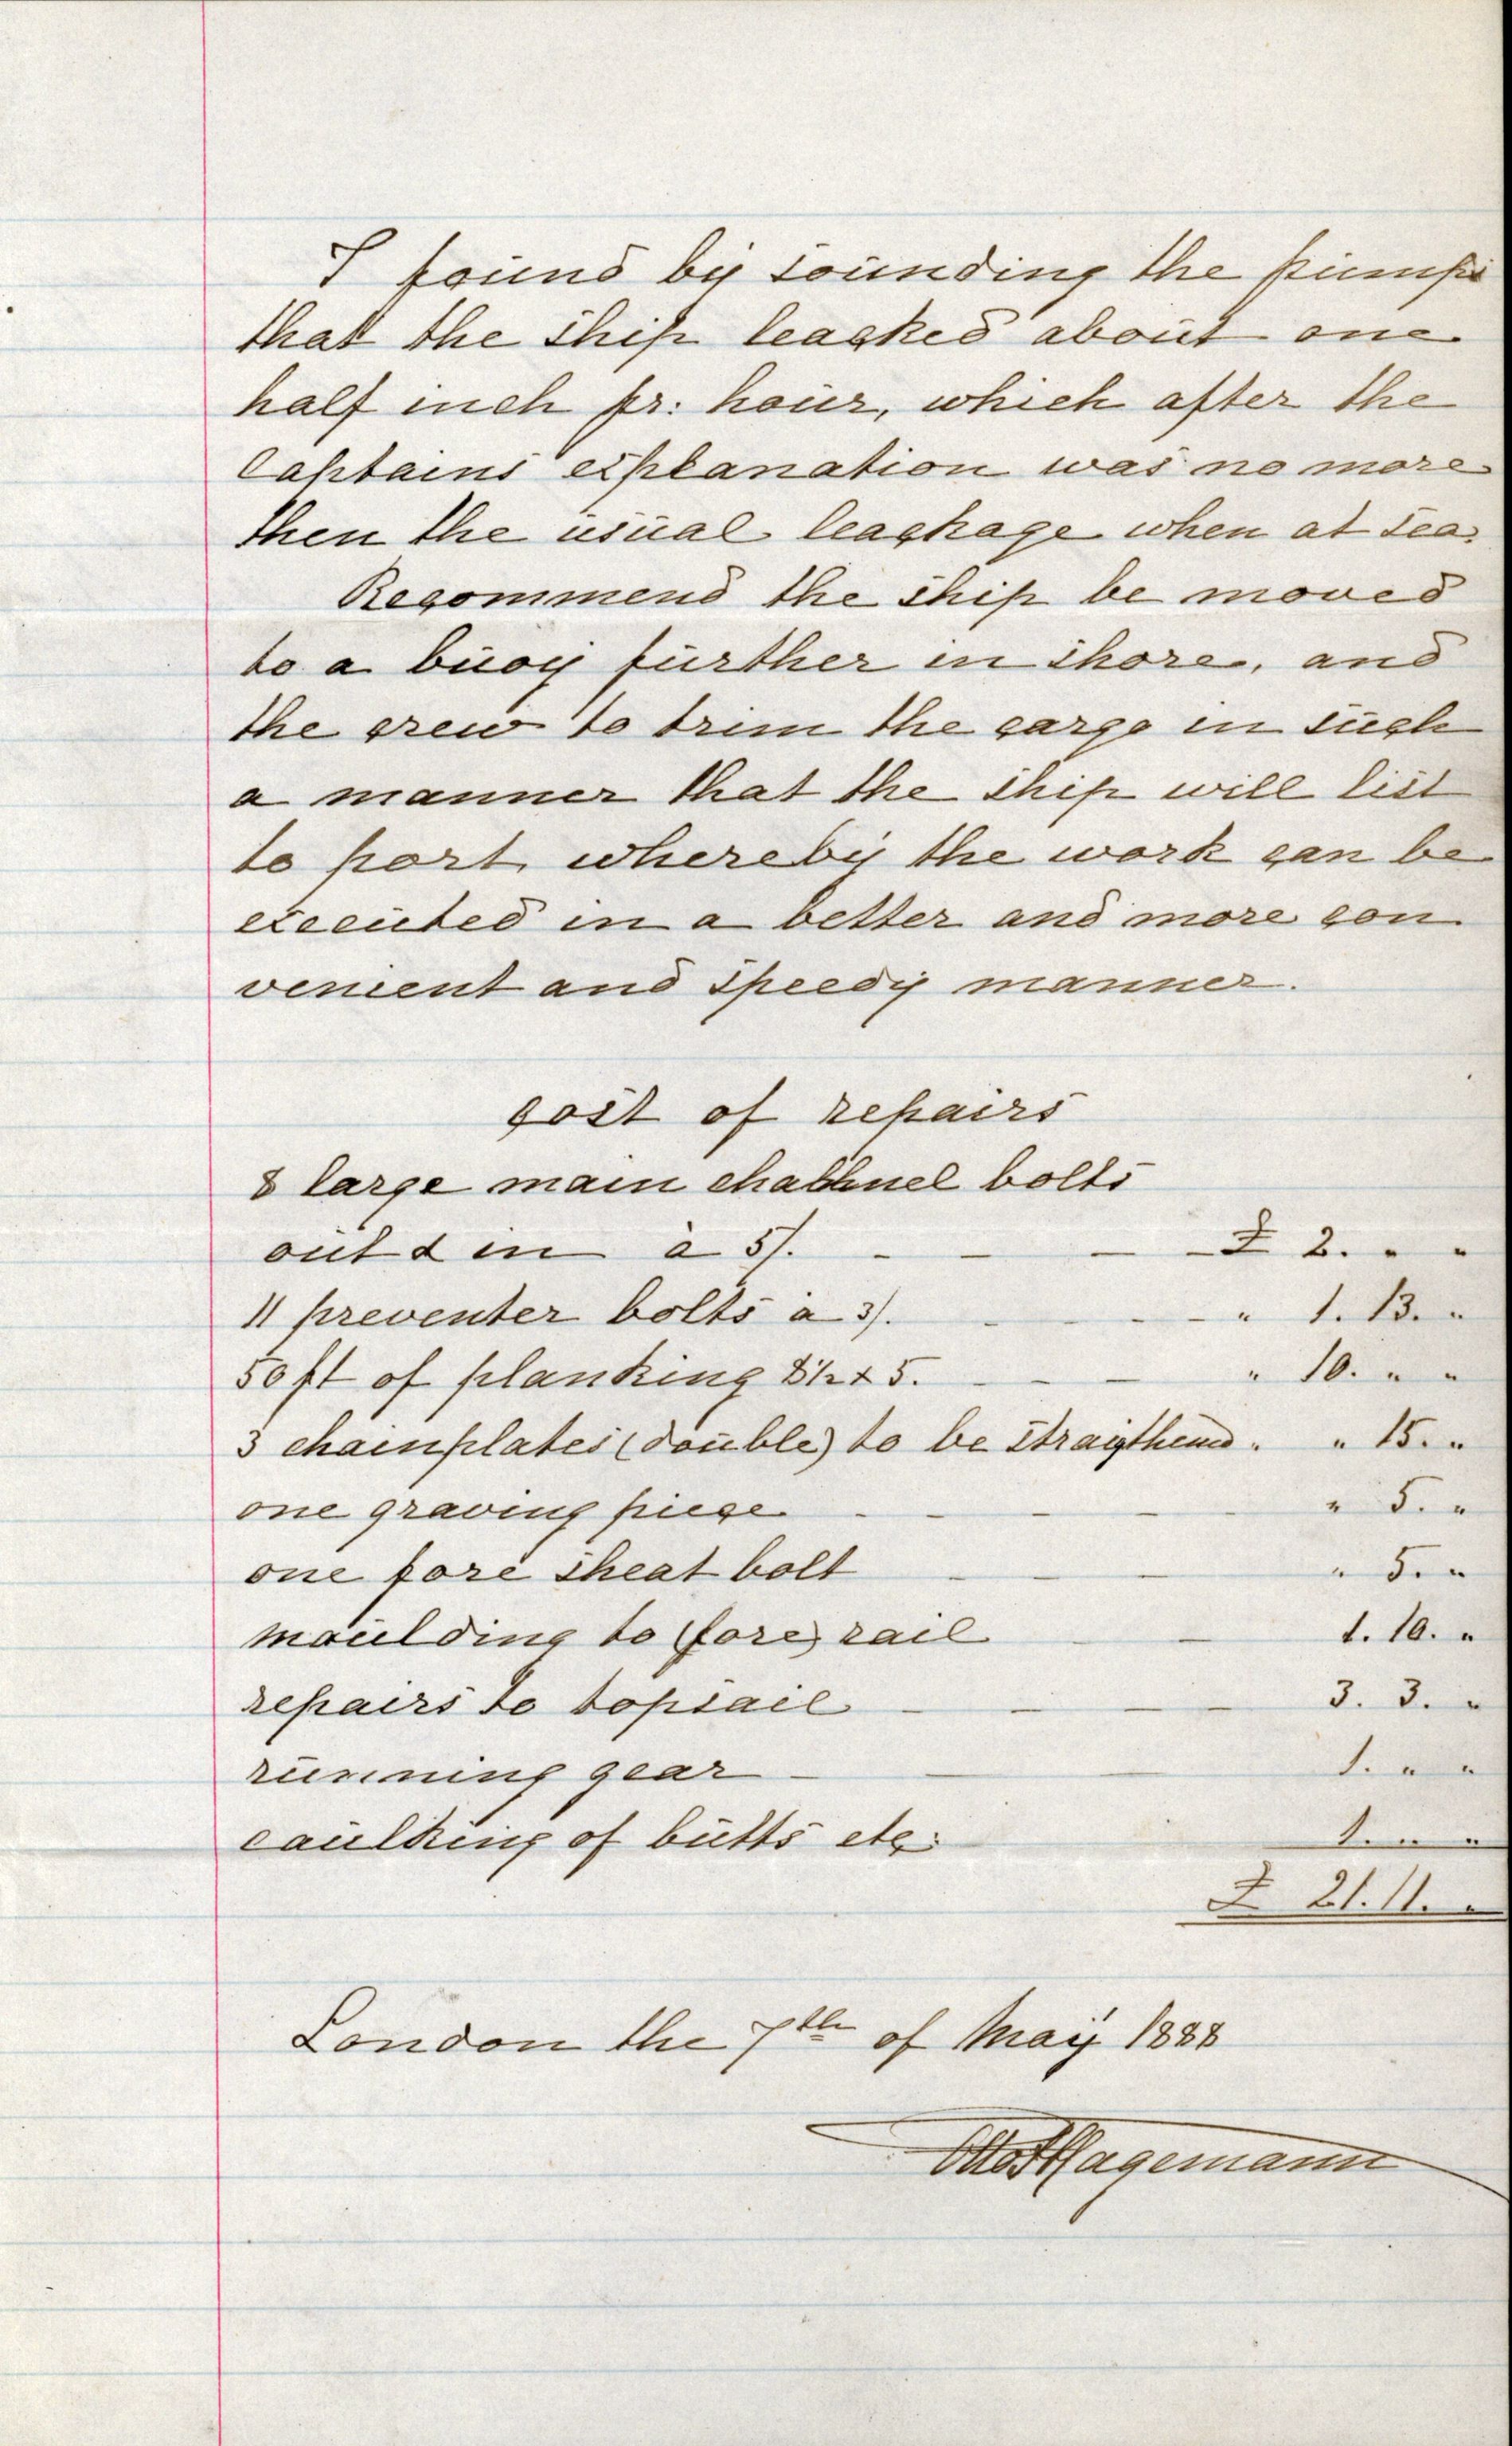 I found by sounding the pumps
that the ship leacked about one
half inch pr: hour, which after the
Captains explanation was no more
then the usual leackage when at sea.
Recommend the ship be moved
to a buoy further in shore, and
the crew to trim the cargo in such
a manner that the ship will list
to port, whereby the work can be
executed in a better and more con
venient and speedy manner.
cost of repairs
8 large main channel bolts
out & in à 5/. - - - £ 2. " "
11 preventer bolts à 3/. - - - " 1. 13. "
50 ft of planking 8½ x 5. - - - " 10. " "
3 chainplates (double) to be straigthend. " 15. "
one graving piece - - - - " 5. "
one fore sheat bolt - - - " 5. "
moulding to (fore) rail - - 1. 10. "
repairs to topsail - - - - 3. 3. "
running gear - - - - 1. " "
caulking of butts etc: - - 1. " "
£ 21. 11. "
London the 7th of May 1888
Otto Hagemann